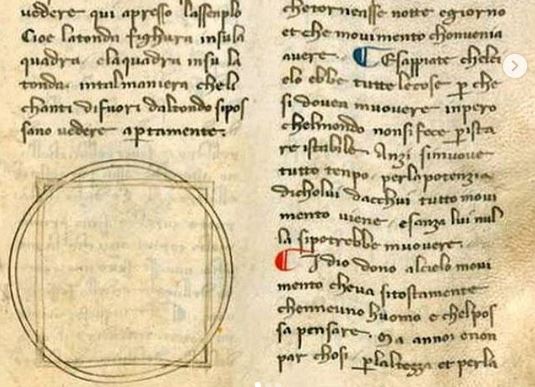 uedere qui apresso lassenplo
Cioe latonda fighura insula
quadra. elaquadra insu la
tonda. intalmaniera cheli
chanti difuori daltondo sipos
sano uedere apertamente.
chetornensse notte egiorno
et che mouimento chonuenia
auere. Esappiate chelci
elo ebbe tutte lecose per che
si douea muouere inpero
chelmondo nonsi fece per ista
re istabile. Anzi simuoue
tutto tempo. perla potenzia
dicholui dacchui tutto moui
mento uiene. esanza lui nul
la sipotrebbe muouere.
Idio dono alcielo moui
mento cheua sitostamente
chenneuno huomo e chelpos
sa pensare. Ma annoi enon
par chosi perlaltezza et perla